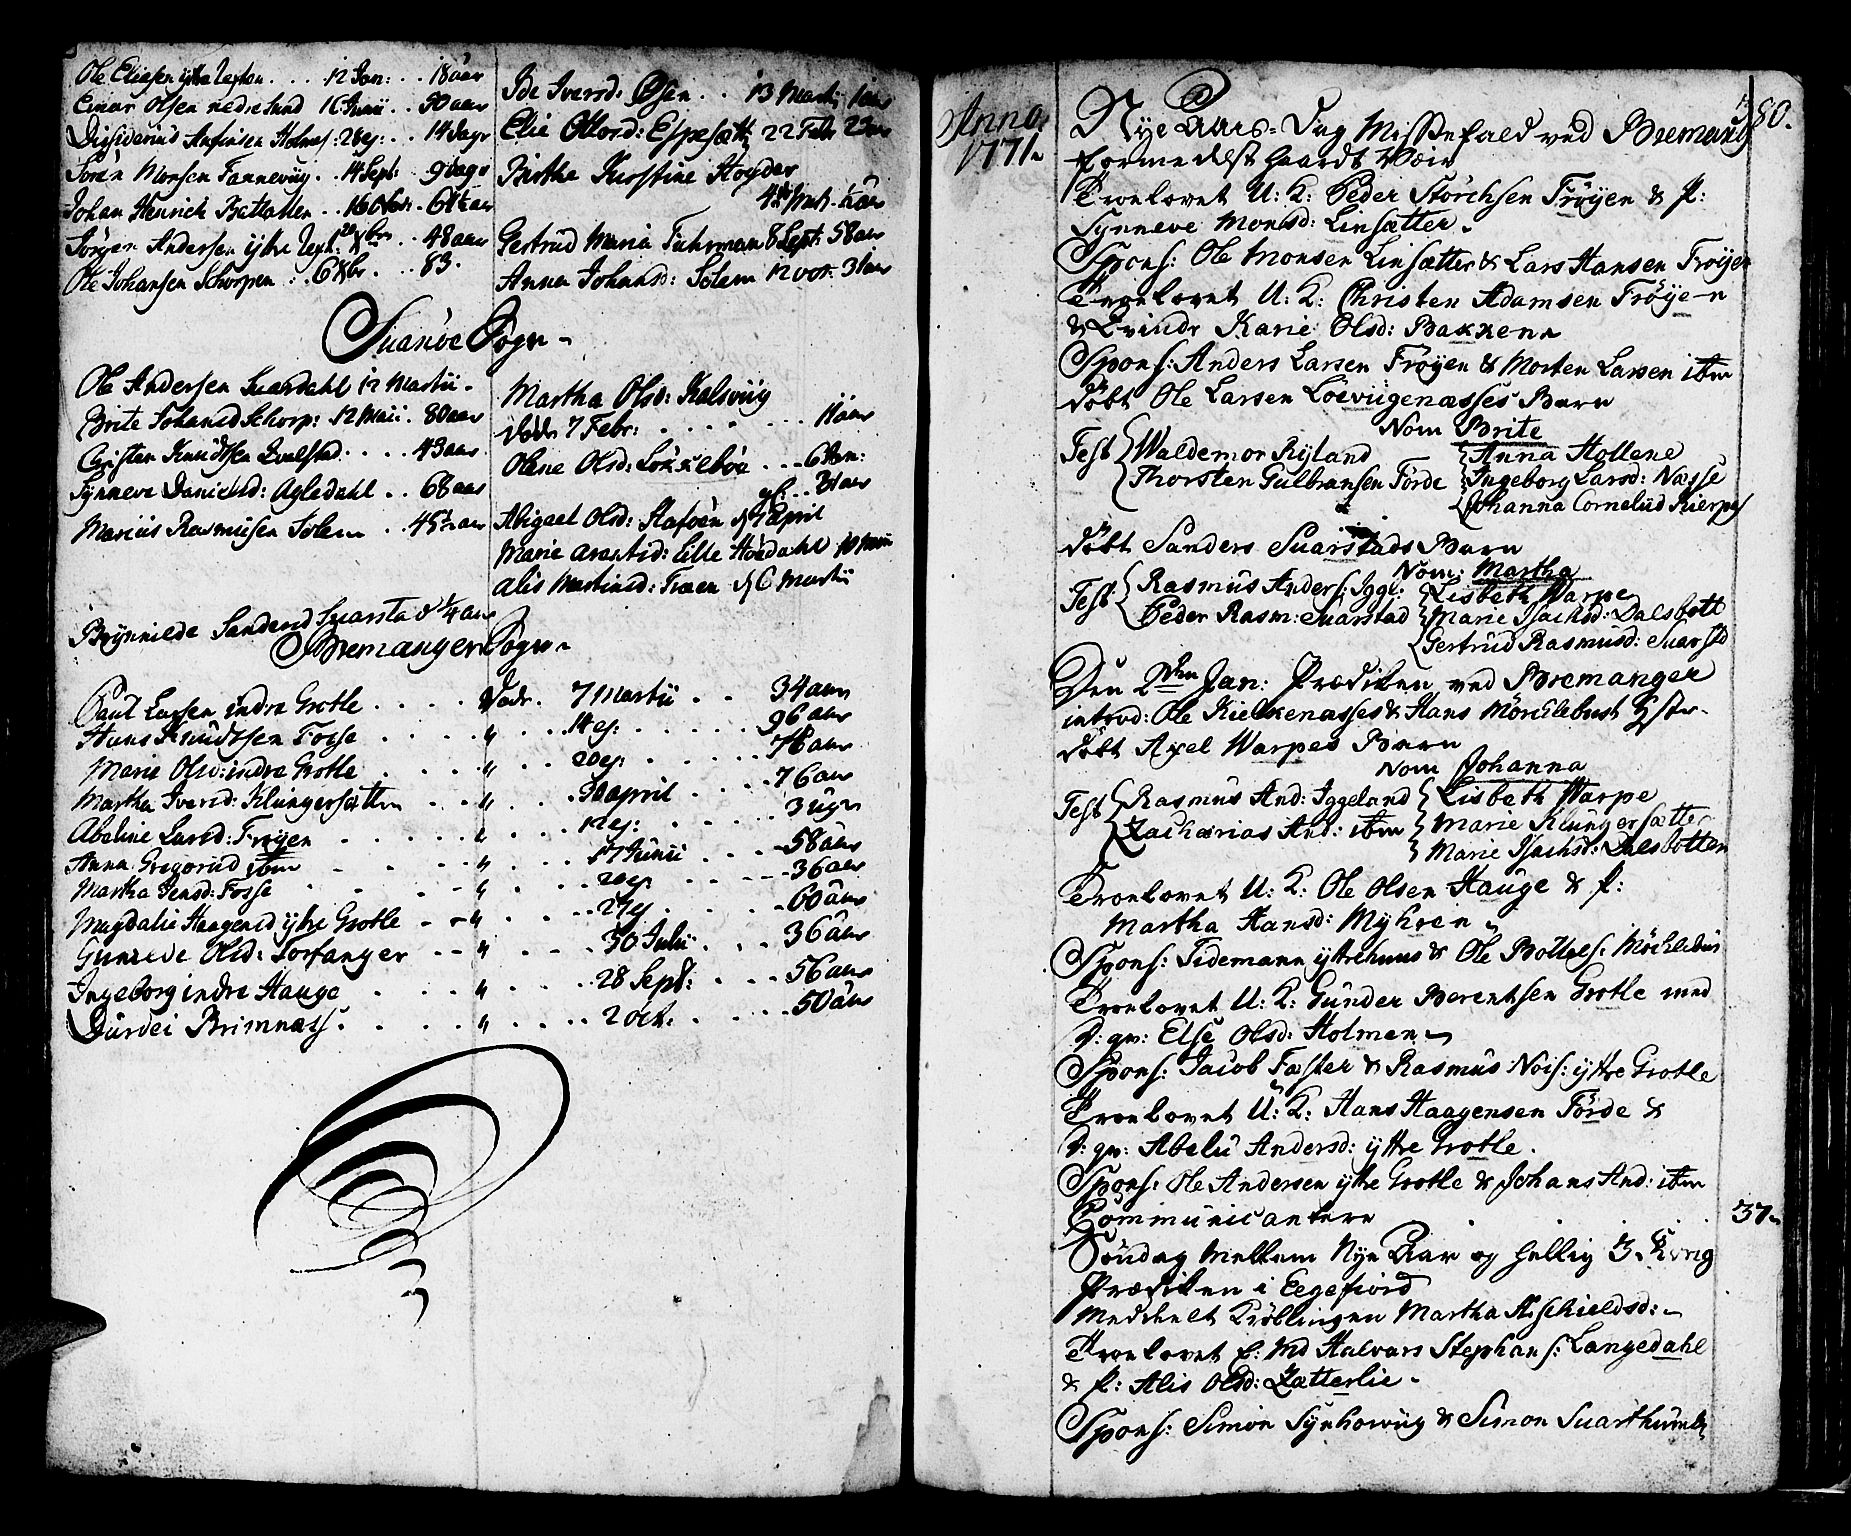 Ole Eliasen ytre Lexton . . . 12 Jan: . . 18 aar
Einar Olsen nedre Lund 16 Junii . . 90 aar
Holmes: 28 ej: . . 14 dage
Sören Monsen Fannevüg . 14 Sept: 9 dage
Johan Henrich . . 16 61½ aar
Jörgen Andersen ytre . . 48 aar
Ole Johansen Schorpen . : 6 Xbr . . . 83.
Ide Iversd: Øsen . . 13 Martij 1 aar
Elie Ottorsd: Espesætt 22 Febr 23 aar
Birthe Kirstine Høyder
Gertrud Maria Fuhrman 8 Sept: 58 aar
Anna Johansd: Solem 12 oct. 31 aar
Suanöe Sogn -
Ole Andersen Suardahl 12 Martii -
Brite Johansd Schorp: 12 Maii . 80 aar
Christen Knudtsen . . . 43 aar
Synneve Danielsd: Agledahl . . 68 aar
Marius Rasmusen Solem . . 45½ aar
Martha Olsd: Kalsvüg
döde 7 Febr: . . . . . . 11 aar
Olene Olsd: Löckeböe . . . 6 Jan:
Abigael Olsd: Staföen d 7 April
Marie Arentsd: Lille Hövdahl 10 Maii
Alis Martinsd: Troen d 6 Martii
Brynnilde Sandersd Suarstad ¼ aar
Bremanger Sogn -
Paul Larsen indre Grotle . . . . döde . 7 Martii . . 34 aar
Hans Knudtsen Fosse . . . . " . . 14 ej: . . . . . 96 aar
Marie Olsd: indre Grotle . . . . " . . 20 ej: . . . . . 76 aar
Martha Iversd: Klüngersætter . . . " . . 30 april . . . . 76 aar
Abeline Larsd: Fröyen . . . . " . . 12 ej: . . . . . 3 uger
Anna Gregorsd item . . . . " . . 17 Junii . . . . 58 aar
Martha Jensd: Fosse . . . . " . . 20 ej . . . . . 36 aar
Magdalie Haagensd ytre Grotle . . " . . 27 ej . . . . . 60 aar
Gunnilde Olsd: Torfanger . . . " . . 30 Julii . . . 36 aar
Ingeborg indre Hauge . . . . " . . 28 Sept: . . . 56 aar
Durdei Brimnæs . . . . . " . . . . 2 oct. . . . . . 50 aar
Anno
1771.
380.
Nye Aars-Dag Messefald ved Bremang
formedelst haardt Veir
Trolovet U: K: Peder Störchsen Fröyen & P:
Synneve Monsd: Linsætter.
Spons: Ole Monsen Linsætter & Lars Hansen Fröyen
Trolovet U: K: Christen Adamsen Fröyen
& Qvinde Karie Olsd: Bakken
Spons: Anders Larsen Fröyen & Morten Larsen item
döbt Ole Larsen Löevügenæsses Barn
Nom Brite
Test { Waldemor Ryland { Anna Hollene
{ Thorsten Gulbransen Förde { Ingeborg Larsd: Næsse
{ Johanna Cornelisd
döbt Sanders Suarstads Barn
Nom: Martha
Test { Rasmus Anders: Igge: { Lisbeth Warpe
{ Peder Rasm: Suarstad { Marie Isachsd: Dalsbott
{ Gertrud Rasmusd: Suarstd
Den 2den Jan: Prædiken ved Bremanger
introd: Ole Kielkenæsses & Hans Mörchlebust Hstr.
döbt Axel Warpes Barn
Nom Johanna
Test { Rasmus And: Iggeland { Lisbeth Warpe
{ Zacharias And: item { Marie Klüngersætter
{ Marie Isachsd: Dalsbotten
Trolovet U: K: Ole Olsen Hauge & P:
Martha Hansd: Myhren
Spons: Tidemann yttrehuus & Ole Mörchlebus
Trolovet U: K: Gunder Berentsen Grotle med
P: gv: Else Olsd: Holmen
Spons: Jacob Faster & Rasmus Nois: yttre Grotle
Trolovet U: K: Hans Haagensen Förde &
P: gv: Abelu Andersd: yttre Grotle.
Spons: Ole Andersen yttre Grotle & Johans And: item
Communicantere . . . 37
Söndag mellem Nye Aar og hellig 3 Kong
Prædiken i Eegefiord
Meddeelt Kröblingen Martha
Trolovet E: Md Halvars Stephans: Langedahl
& P: Alis Olsd: Zætterlie.
Spons: Simon Synhovüg & Simon Suarthumle